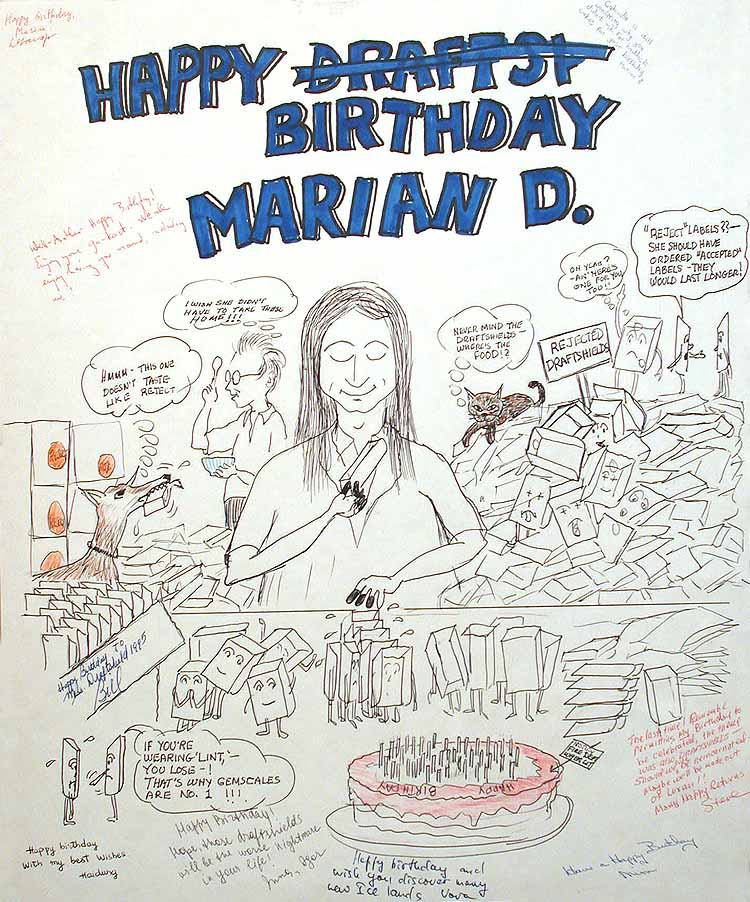 Happy birthday,
Marian
HAPPY DRAFTSP
BIRTHDAY
MARIAN D.
Happy Birthday!
Enjoy your
"REJECT" LABELS??—
SHE SHOULD HAVE
ORDERED "ACCEPTED"
LABELS – THEY
WOULD LAST LONGER!
OH YEAH?
–AN' HERE'S
ONE FOR YOU
TOO!!
I WISH SHE DIDN'T
HAVE TO TAKE THESE
HOME!!!
NEVER MIND THE
DRAFTSHIELDS—
WHERE'S THE
FOOD!?
REJECTED
DRAFTSHIELDS
HMMM – THIS ONE
DOESN'T TASTE
LIKE REJECT
Happy Birthday To
Miss Draftshield 1985
Bill
IF YOU'RE
WEARING 'LINT,'–
YOU LOSE –
THAT'S WHY GEMSCALES
ARE NO. 1 !!!
HAPPY
BIRTHDAY
The last time I
my Birthday to
be celebrated, the
was also
be reincarnated.
Maybe we'll be made out
of Lexan!!
Many Happy Returns
Steve
Happy birthday
with my best wishes
Haidung
Happy Birthday!
Hope those draftshields
will be the worse nightmare
in your life!
Igor
Happy birthday and
wish you discover many
new Ice lands Vova
Have a Happy Birthday